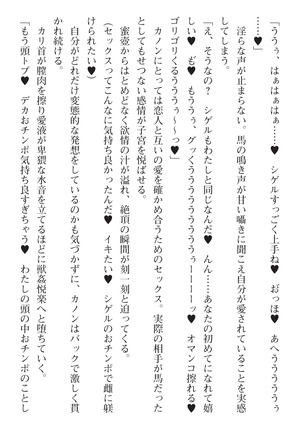 「ううっ、はぁはぁはぁ……♥　シゲルすっごく上手ね♥　おっほ♥　あへうううううぅ♥」
淫らな声が止まらない。馬の鳴き声が甘い囁きに聞こえ自分が愛されていることを実感してしまう。
「え、そうなの？　シゲルもわたしと同じなんだ♥　んん……あなたの初めてになれて嬉しい♥　お♥　もううぅ、グッくうううううううぅーーーッ♥　オマンコ擦れる♥　ゴリゴリくるうううぅ〜〜っ♥」
カノンにとっては恋人と互いの愛を確かめ合うためのセックス。実際の相手が馬だったとしてもせつない感情が子宮を悦ばせる。
蜜壺からはとめどなく欲情の汁が溢れ、絶頂の瞬間が刻一刻と迫ってくる。
（セックスってこんなに気持ち良かったんだ♥　イキたい♥　シゲルのおチンポで雌に躾けられたい♥）
自分がどれだけ変態的な発想をしているのかも気づかずに、カノンはバックで激しく貫かれ続ける。
カリ首が膣肉を擦り愛液が卑猥な水音を立てるほどに獣姦悦楽へと堕ちていく。
「もう頭トブ♥　デカおチンポ気持ち良すぎちゃう♥　わたしの頭の中おチンポのことし